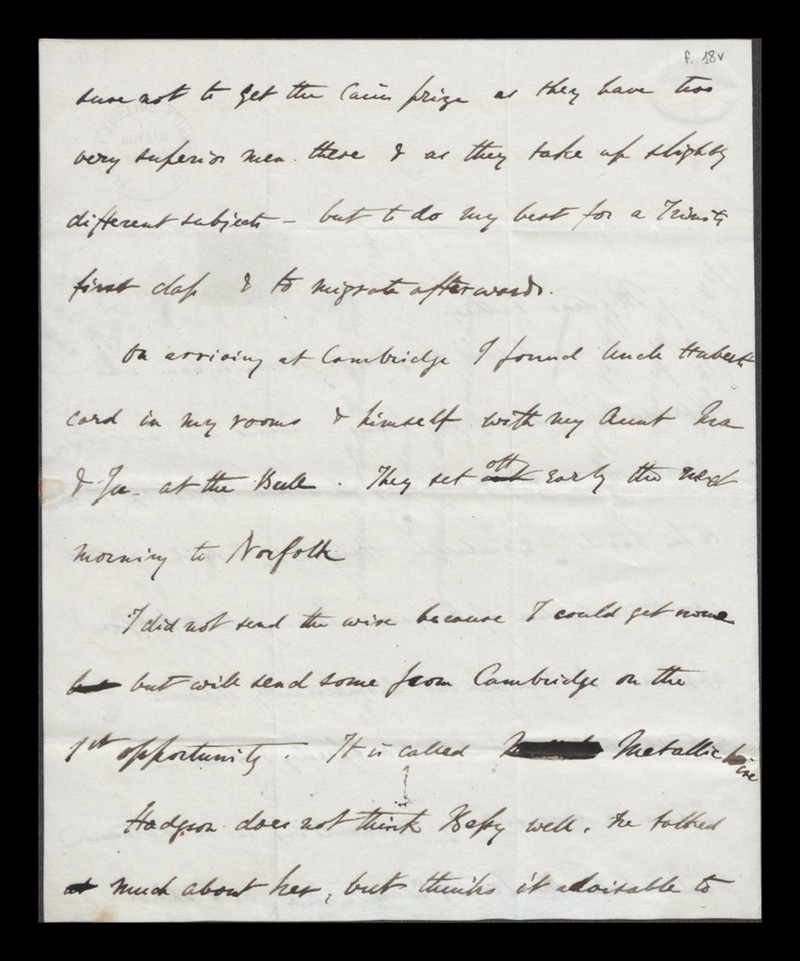 f. 18v
sure not to get the Caius prize as they have two
very superior men there & as they take up slightly
different subjects – but to do my best for a Trinity
first class & to migrate afterwards.
On arriving at Cambridge I found Uncle Hubert
card in my rooms & himself with my Aunt
& at the Bull. They set off early the next
morning to Norfolk
I did not send the wire because I could get none
but will send some from Cambridge on the
1st opportunity. It is called Metallic wire
Hodgson does not think Bessy well. He talked
much about her, but thinks it advisable to